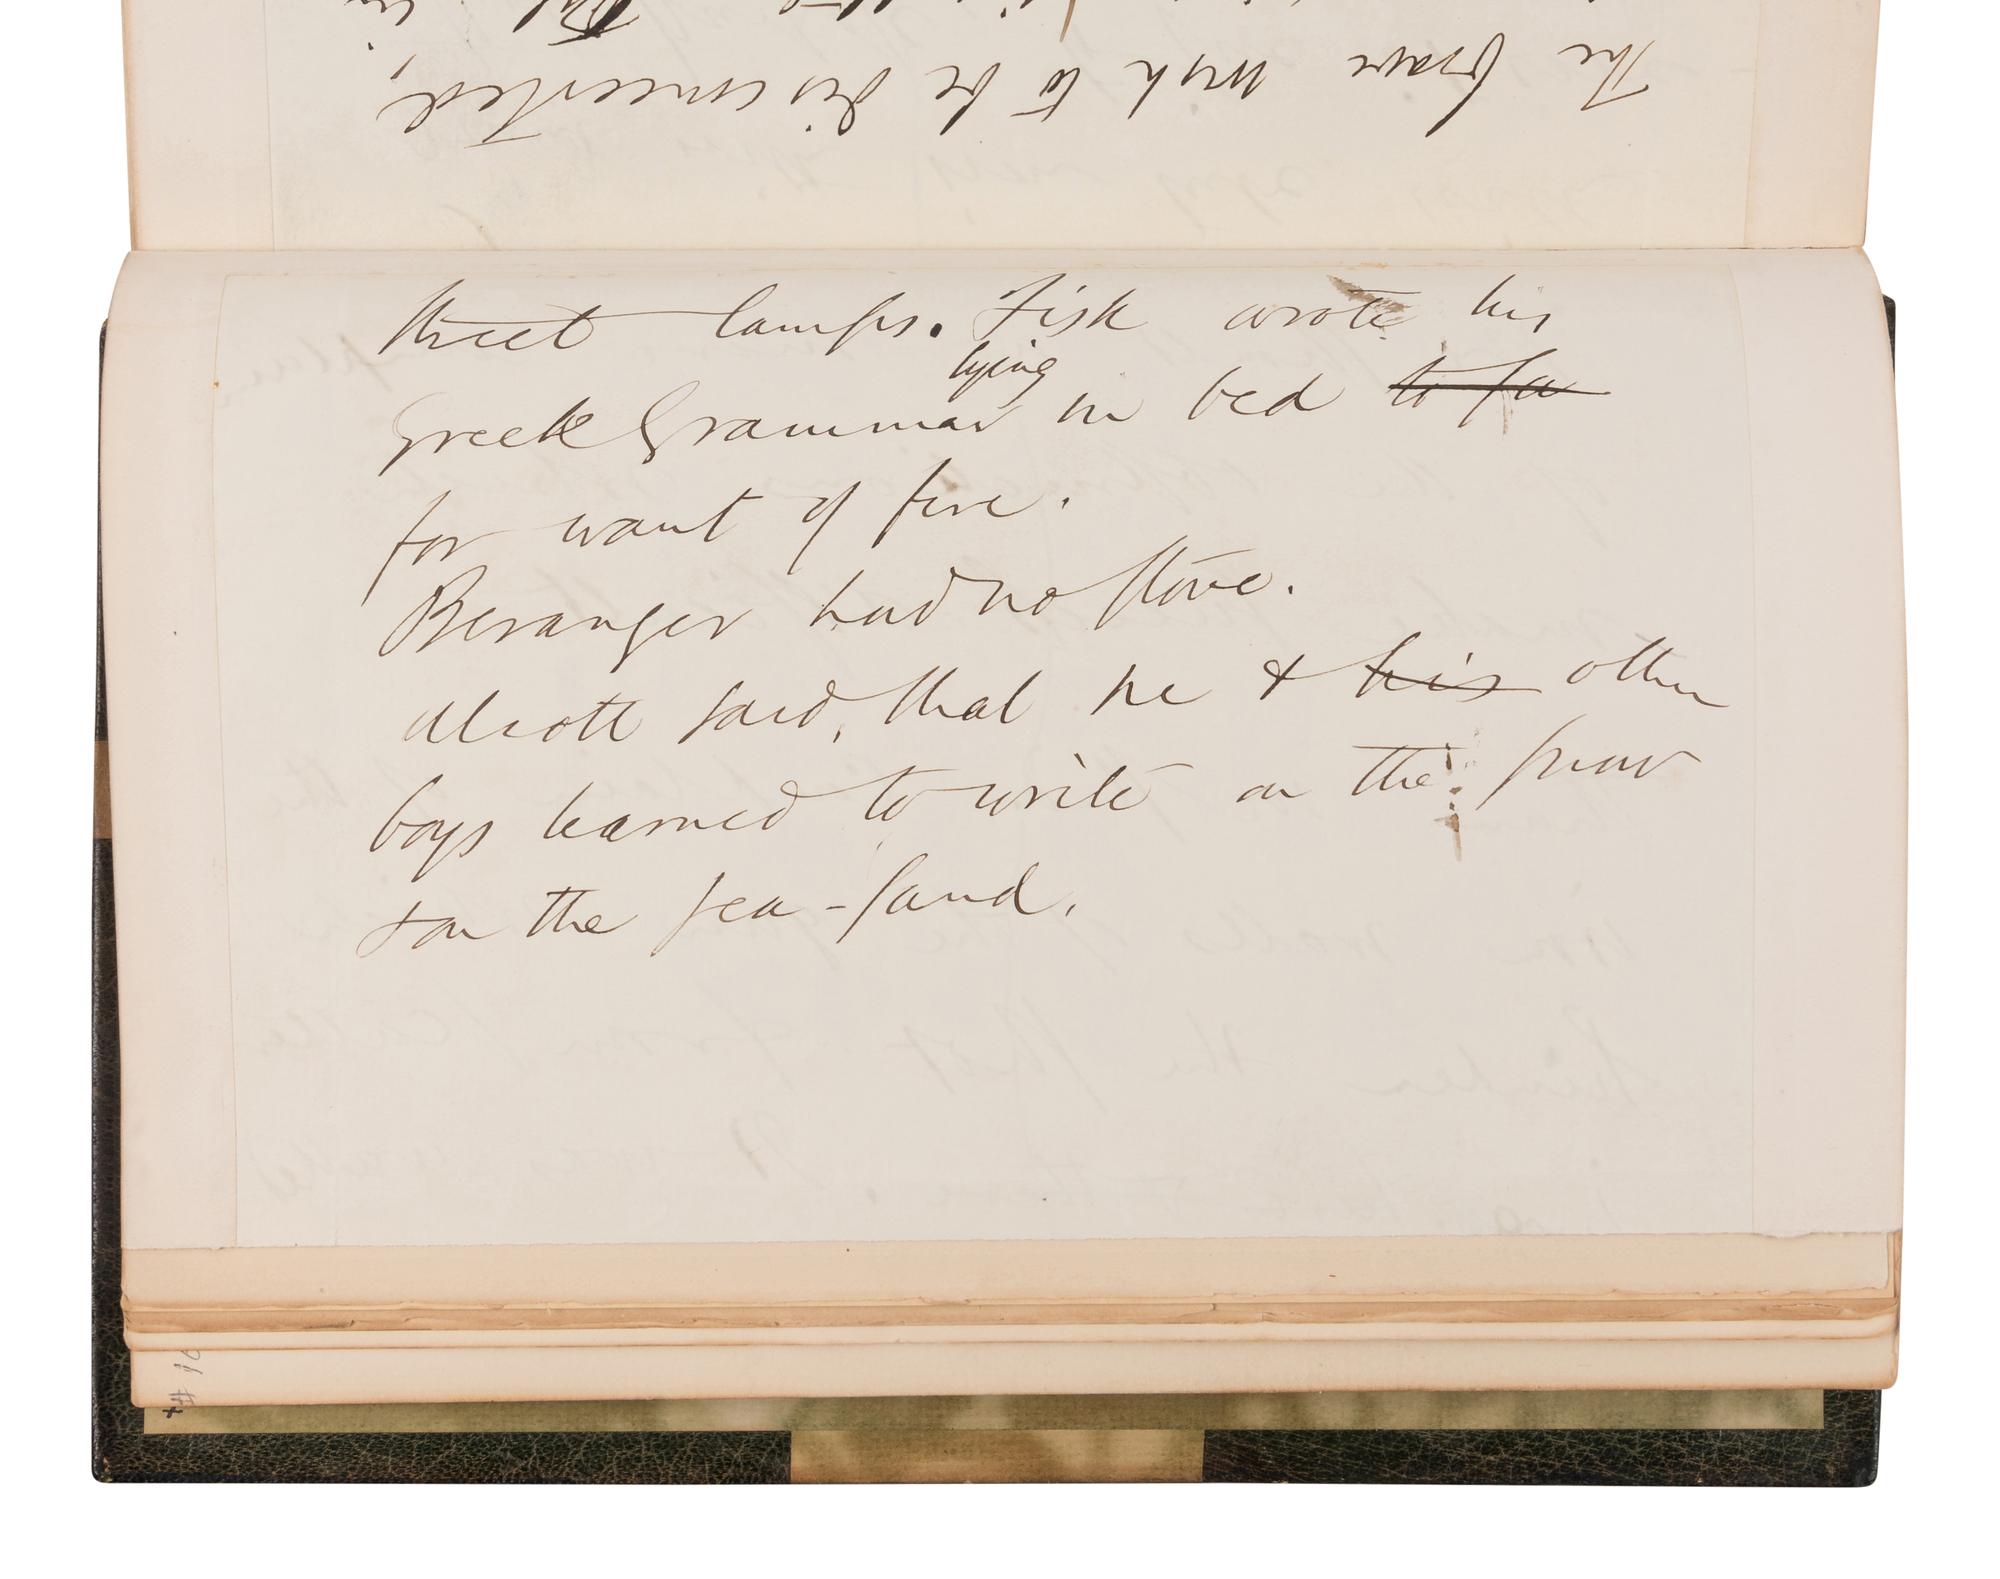 The brave wish to be disconcerted,
street lamps. Fisk wrote his
lying
Greek Grammar in bed to fa
for want of fire.
Beranger had no stove.
Alcott said, that he & his other
boys learned to write on the snow
& on the sea-sand.